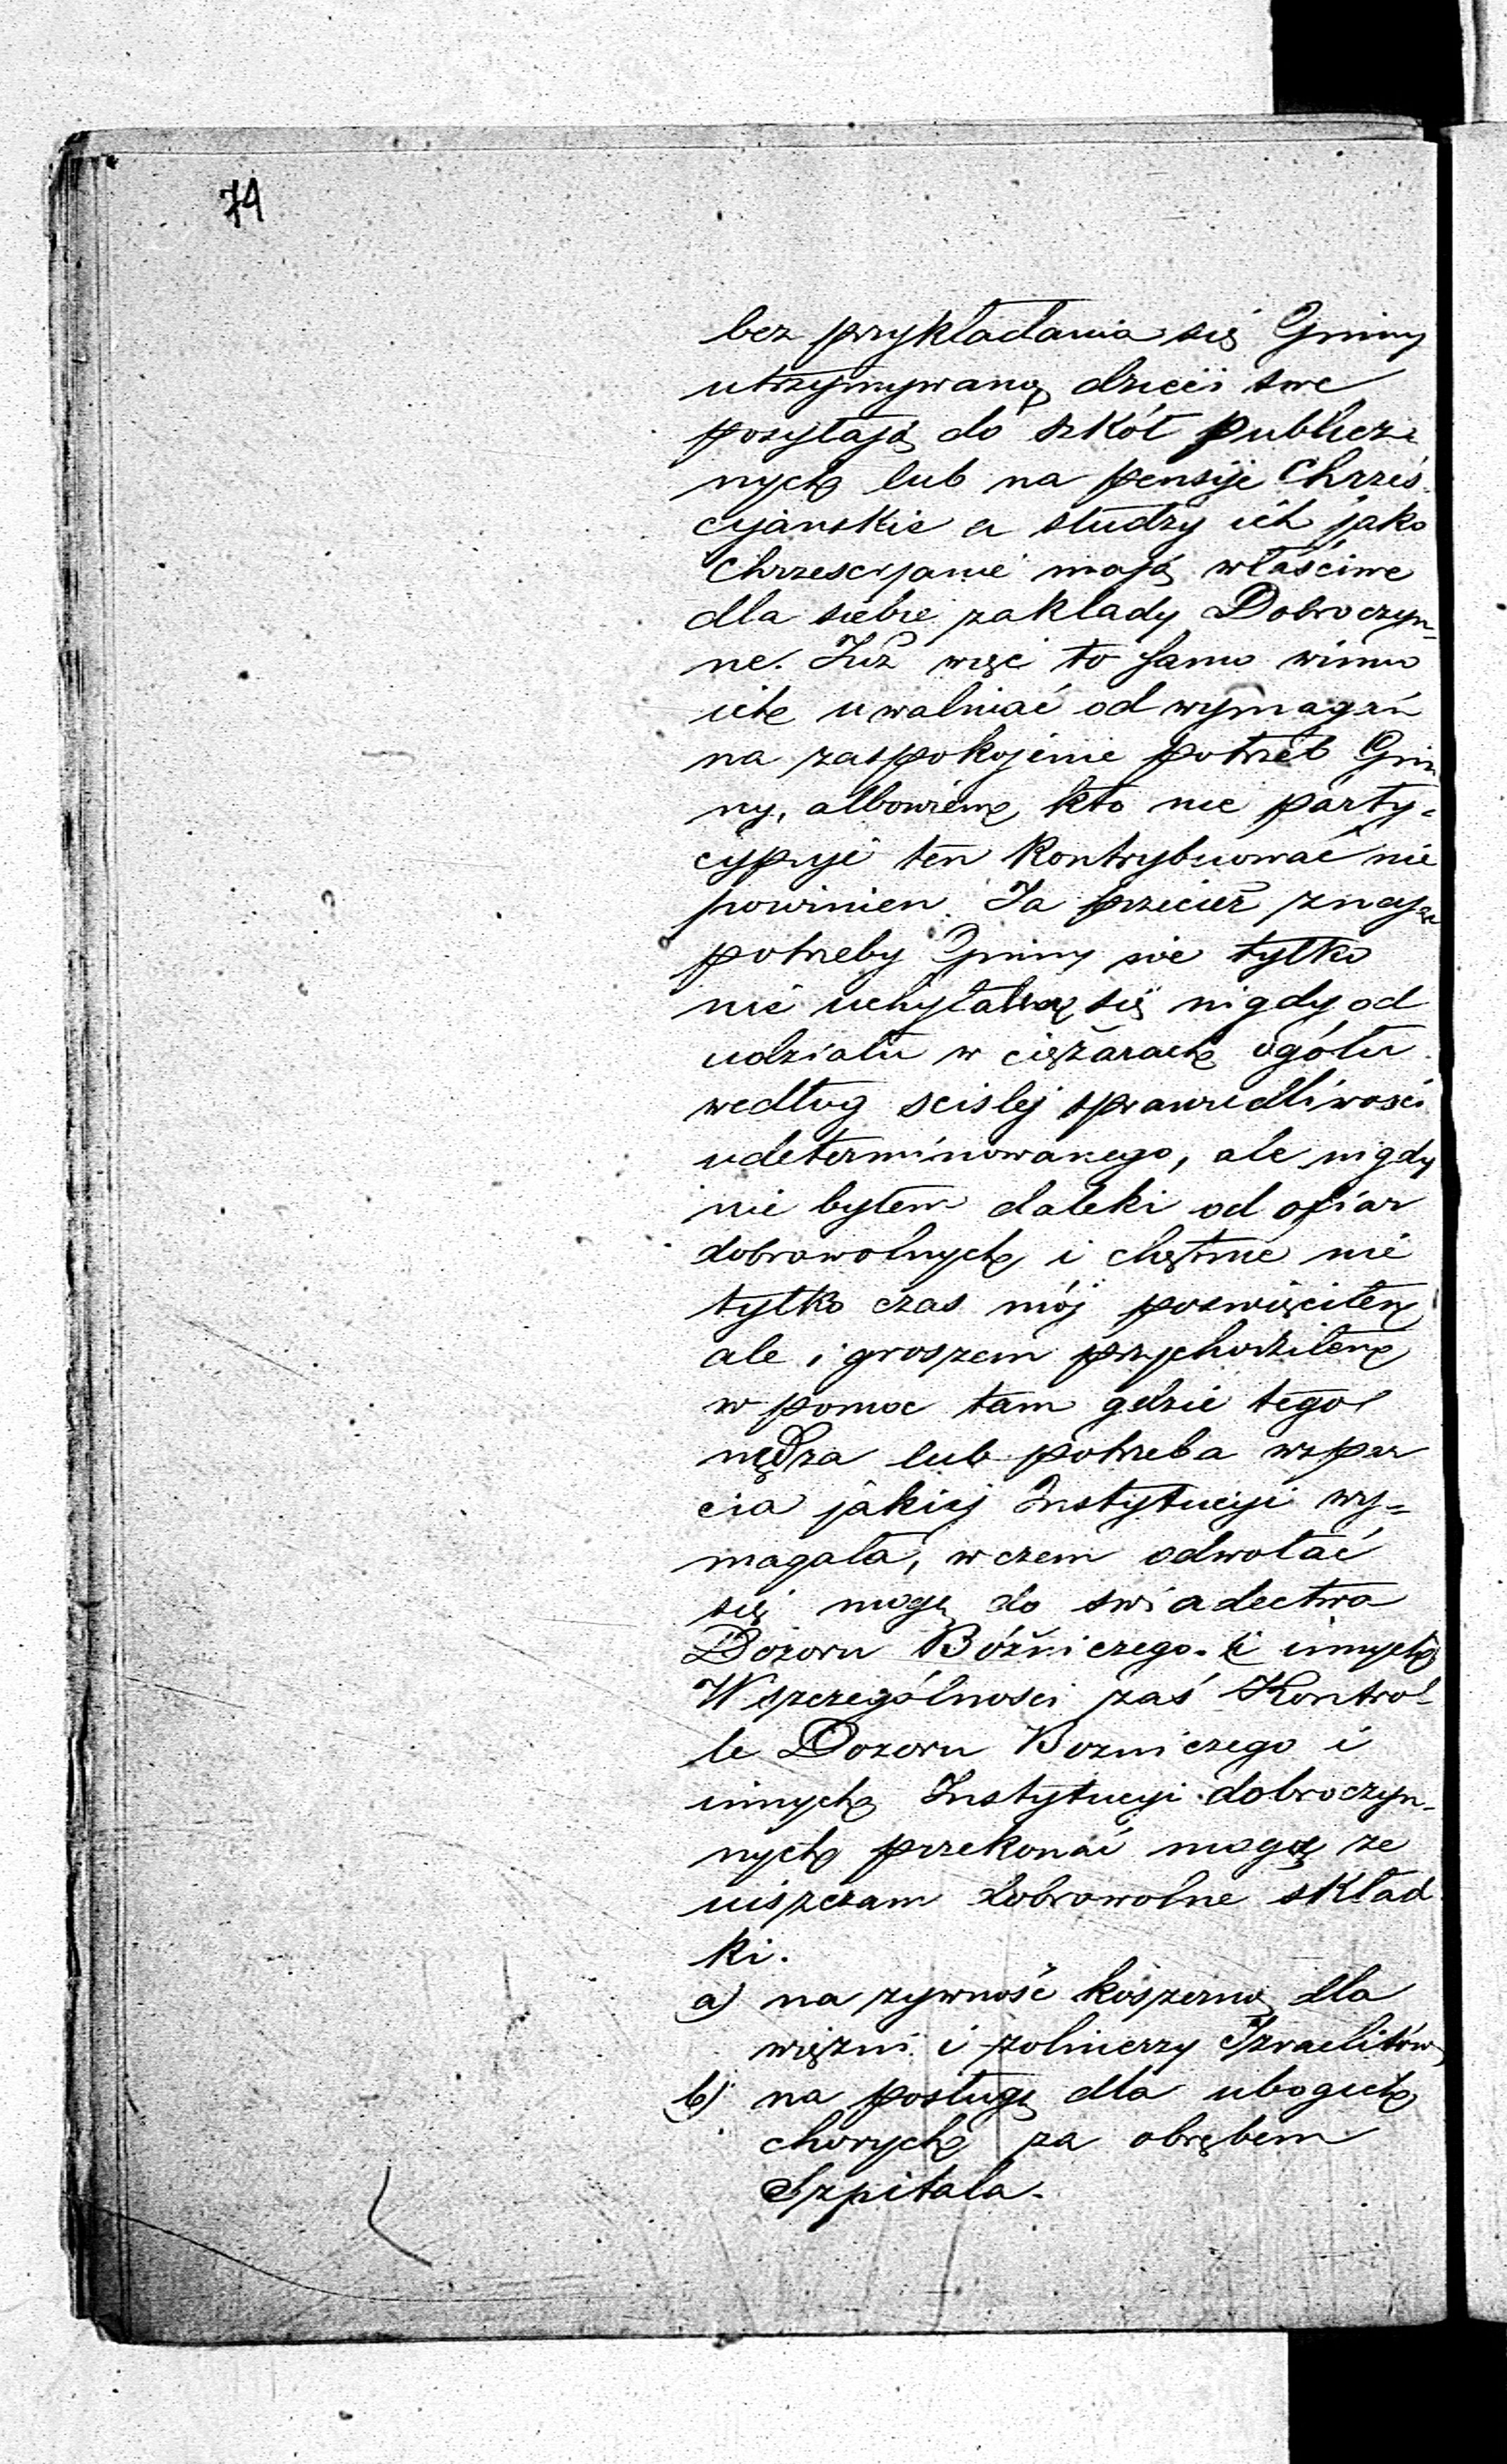 74
bez przykładania się Gminy
utrzymywaną dzieci swe
posyłają do szkół publicz-
nych lub na pensije Chrześ
cijańskie a słudzy ich jako
Chrzescijanie mają właściwe
dla siebie zakłady Dobroczyn-
ne. Już więc to samo winno
ich uwalniać od wymagań
na zaspokojenie potrzeb Gmi
ny, albowiem kto nie party-
cypuje ten kontrybuować nie
powinien. Ja przecież znając
potrzeby Gminy nie tylko
nie uchylałem się nigdy od
udziału w ciężarach ogółu
według scislej sprawiedliwości
udeterminowanego, ale nigdy
nie byłem daleki od ofiar
dobrowolnych i chętnie nie
tylko czas mój poswięciłem
ale i groszem przychodziłem
w pomoc tam gdzie tego
nędza lub potrzeba wspar
cia jakiej Instytucyi wy-
magała, w czem odwołać
się mogę do swiadectwa
Dozoru Bóźniczego i innych
W szczególnosci zaś Kontrol
le Dozoru Bozniczego i
innych Instytucyi dobroczyn-
nych przekonać mogą ze
uiszczam dobrowolne skład
ki.
a) na zywność koszerną dla
więzni i zolnierzy Izraelitów
b) na posługę dla ubogich
chorych za obrębem
Szpitala.